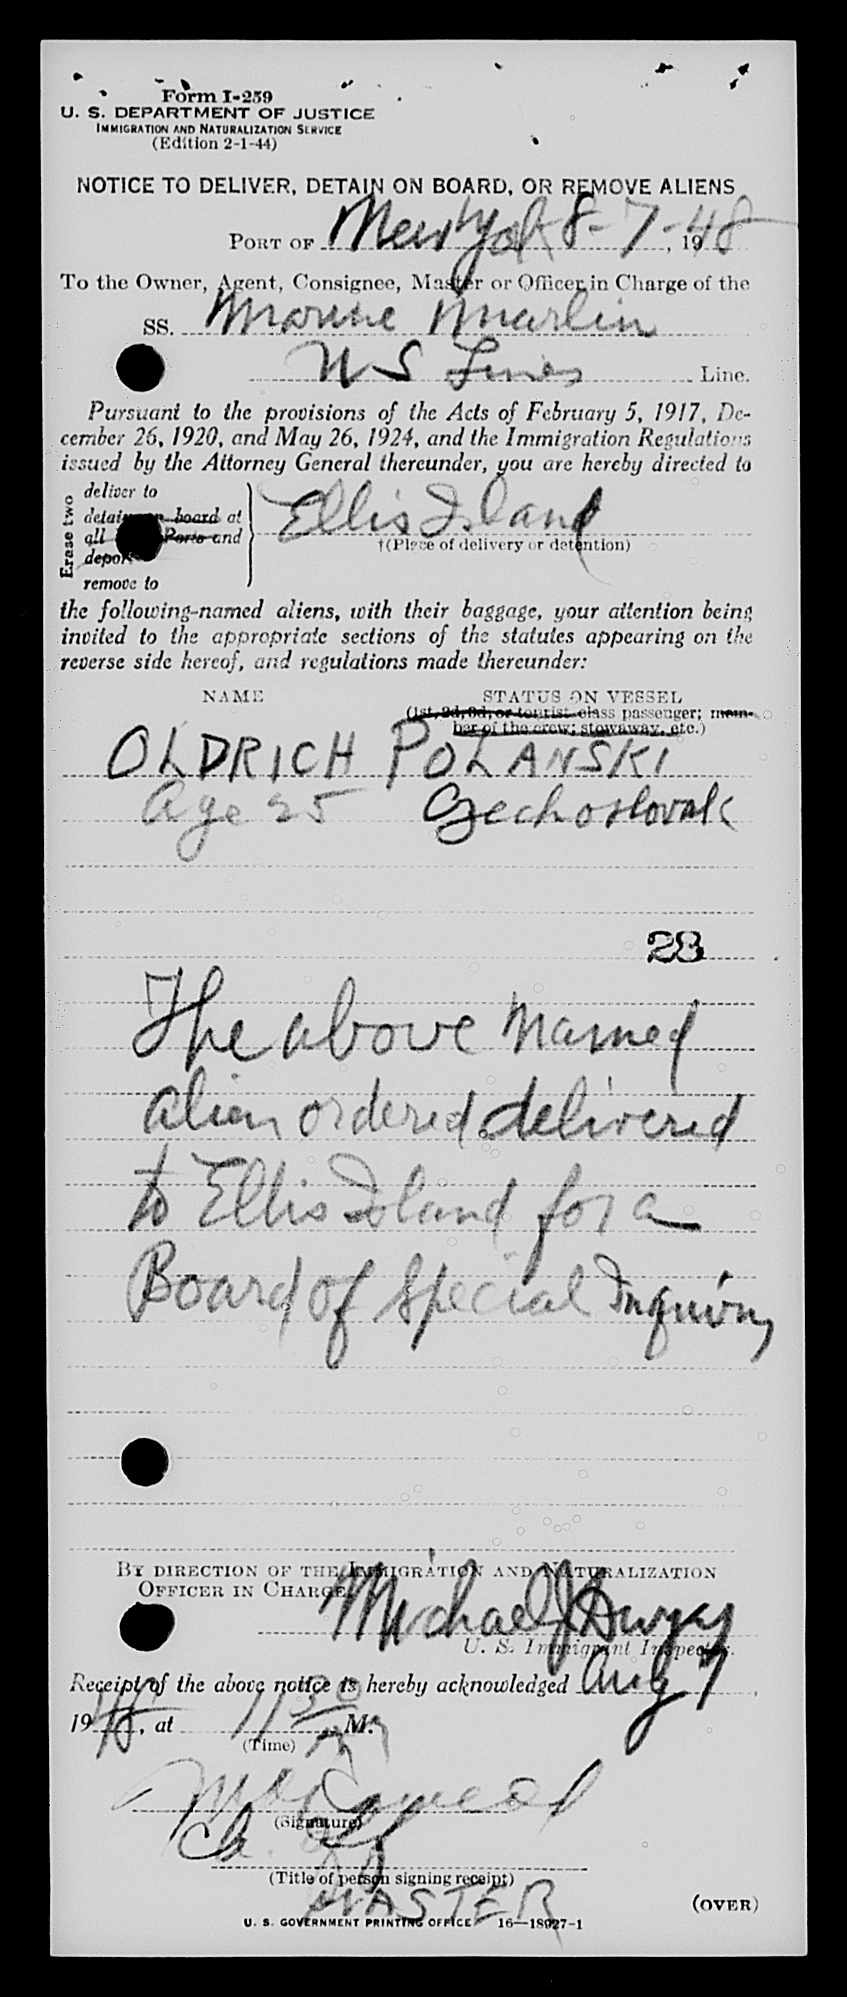 Form I-259
U. S. DEPARTMENT OF JUSTICE
IMMIGRATION AND NATURALIZATION SERVICE
(Edition 2-1-44)
NOTICE TO DELIVER, DETAIN ON BOARD, OR REMOVE ALIENS
PORT OF New York 8-7-, 1948
To the Owner, Agent, Consignee, Master or Officer in Charge of the
SS. Marine Marlin
U S Lines Line.
Pursuant to the provisions of the Acts of February 5, 1917, De-
cember 26, 1920, and May 26, 1924, and the Immigration Regulations
issued by the Attorney General thereunder, you are hereby directed to
Erase two
deliver to
detain on board at
all Ports and
deport
remove to
Ellis Island
†(Place of delivery or detention)
the following-named aliens, with their baggage, your attention being
invited to the appropriate sections of the statutes appearing on the
reverse side hereof, and regulations made thereunder:
NAME STATUS ON VESSEL
(1st, 2d, 3d, or tourist-class passenger; mem-
ber of the crew; stowaway, etc.)
OLDRICH POLANSKI
Age 25 Czechoslovak
23
The above named
alien ordered delivered
to Ellis Island for a
Board of Special Inquiry
BY DIRECTION OF THE IMMIGRATION AND NATURALIZATION
OFFICER IN CHARGE
Michael J Dwyer
U. S. Immigrant Inspector.
Receipt of the above notice is hereby acknowledged Aug 7,
1948, at 11 30 M.
(Time)
(Signature)
Ch. Off
(Title of person signing receipt)
MASTER
(OVER)
U. S. GOVERNMENT PRINTING OFFICE 16—18927-1